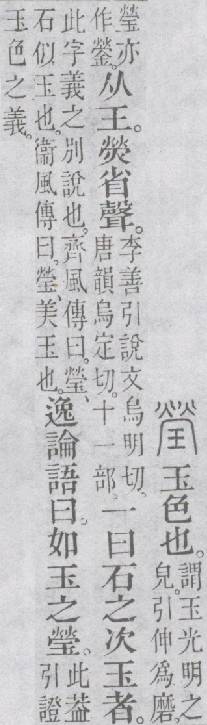 瑩玉色也。謂玉光明之皃。引伸爲磨
瑩亦作鎣。从王。熒省聲。李善引說文烏明切、唐韻烏定切。十一部。一曰石之次玉者。
此字義之別說也。齊風傳曰。瑩、石似玉也。衞風傳曰。瑩、美玉也。逸論語曰。如玉之瑩。此葢引證
玉色之義。